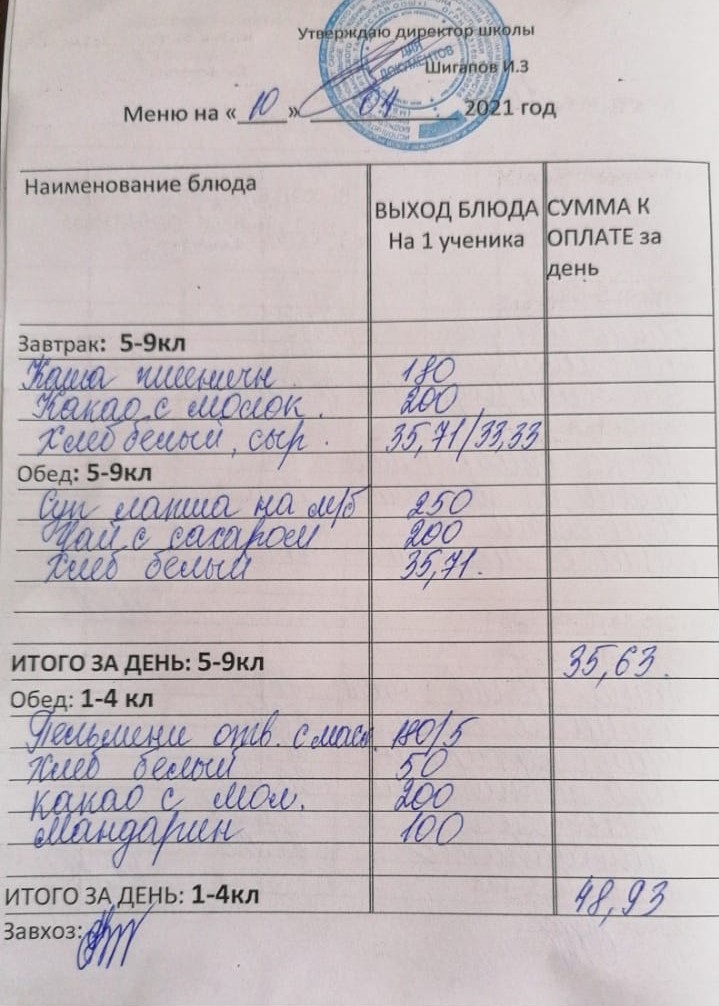 Утверждаю директор школы
ДЛЯ ДОКУМЕНТОВ
Шигапов И.З
Меню на «10» 04 2021 год
Наименование блюда
ВЫХОД БЛЮДА На 1 ученика
СУММА К ОПЛАТЕ за день
Завтрак: 5-9кл
Каша пшеничн. 180
Какао с молок. 200
Хлеб белый, сыр. 35,71/33,33
Обед: 5-9кл
Суп лапша на м/б 250
Чай с сахаром 200
Хлеб белый 35,71.
ИТОГО ЗА ДЕНЬ: 5-9кл 35,63.
Обед: 1-4 кл
Пельмени отв. с масл. 180/5
Хлеб белый 50
какао с мол. 200
Мандарин 100
ИТОГО ЗА ДЕНЬ: 1-4кл 48,93
Завхоз: